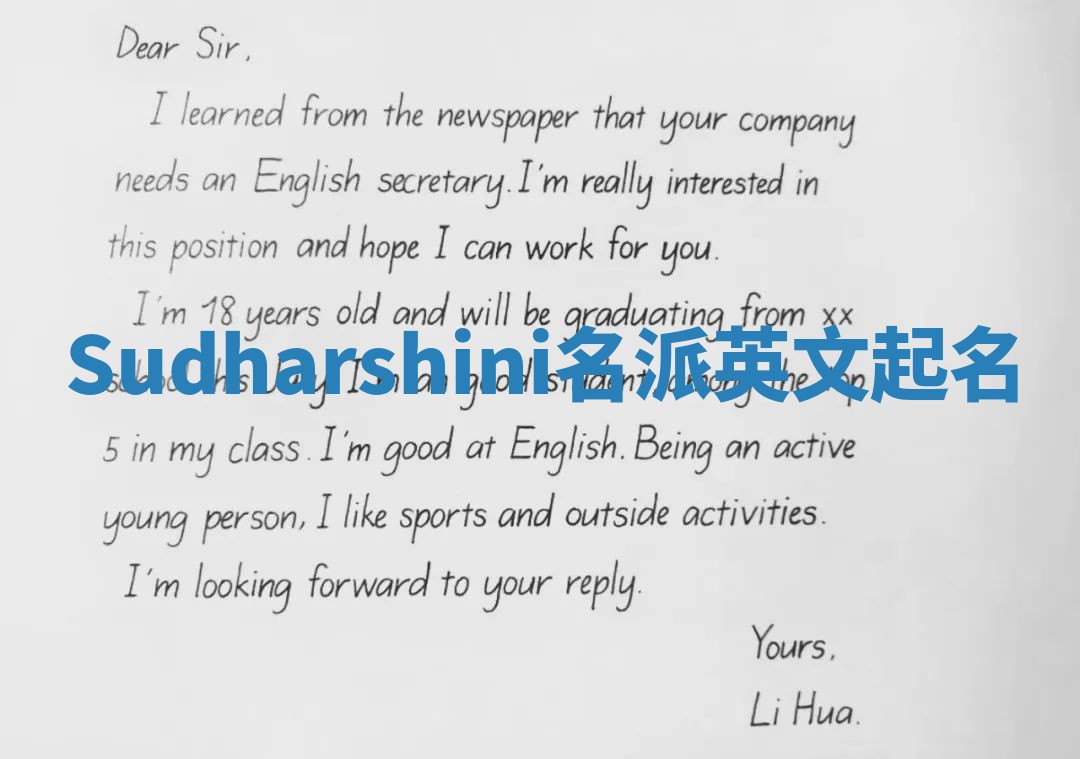 Dear Sir,
I learned from the newspaper that your company
needs an English secretary. I'm really interested in
this position and hope I can work for you.
I'm 18 years old and will be graduating from xx
Sudharshini名派英文起名
school this July. I'm an good student, among the top
5 in my class. I'm good at English. Being an active
young person, I like sports and outside activities.
I'm looking forward to your reply.
Yours,
Li Hua.